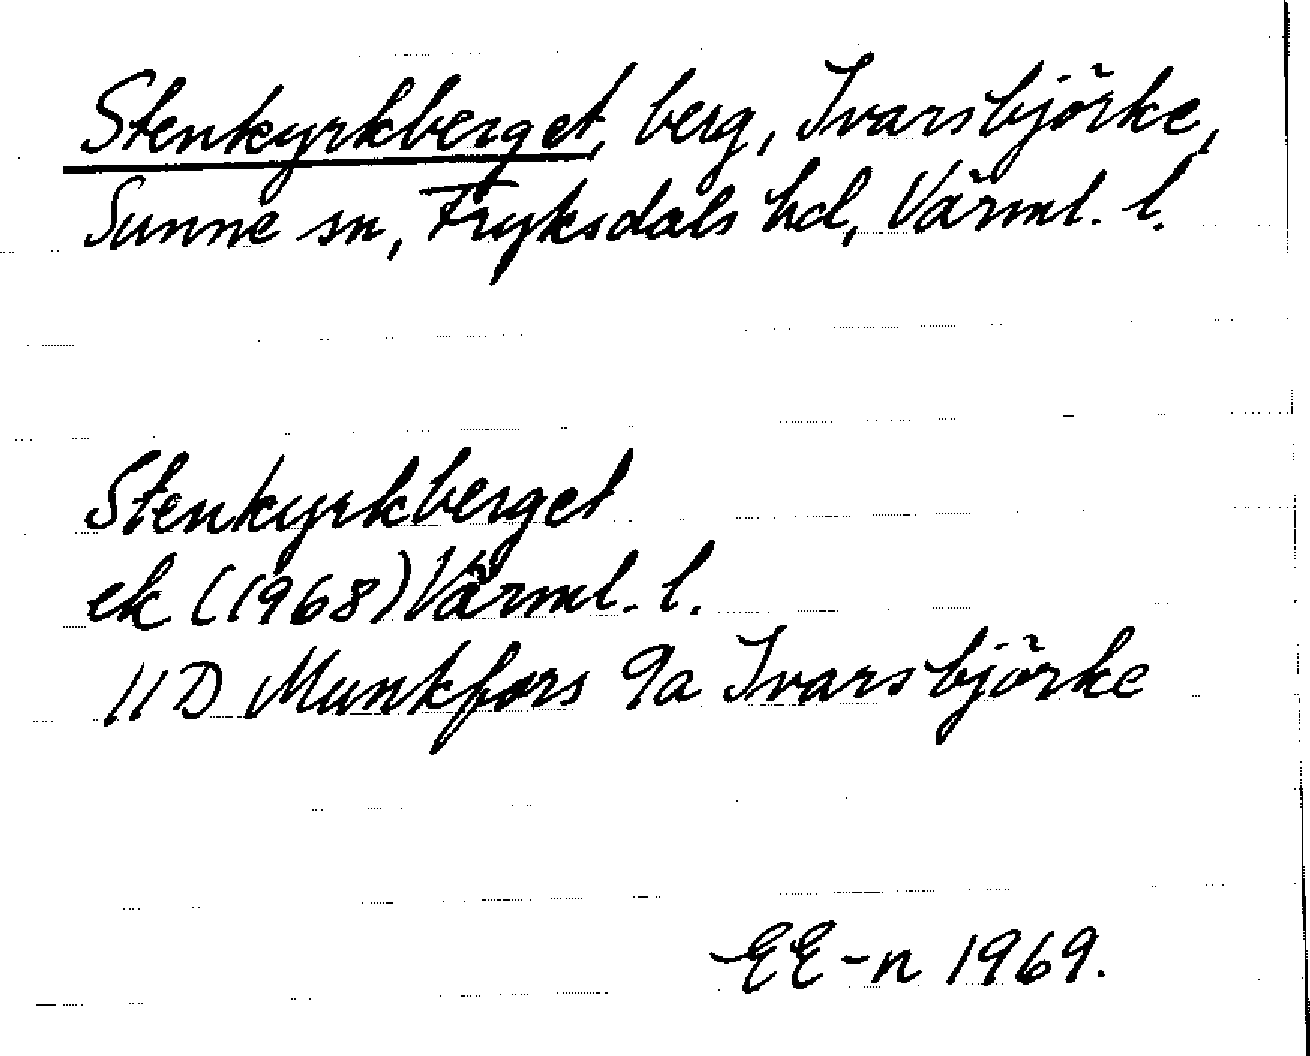 Stenkyrkberget, berg, Ivarsbjörke,
Sunne sn, Fryksdals hd, Värml. l.
Stenkyrkberget
ek (1968) Värml. l.
11D Munkfors 9a Ivarsbjörke
EE-n 1969.